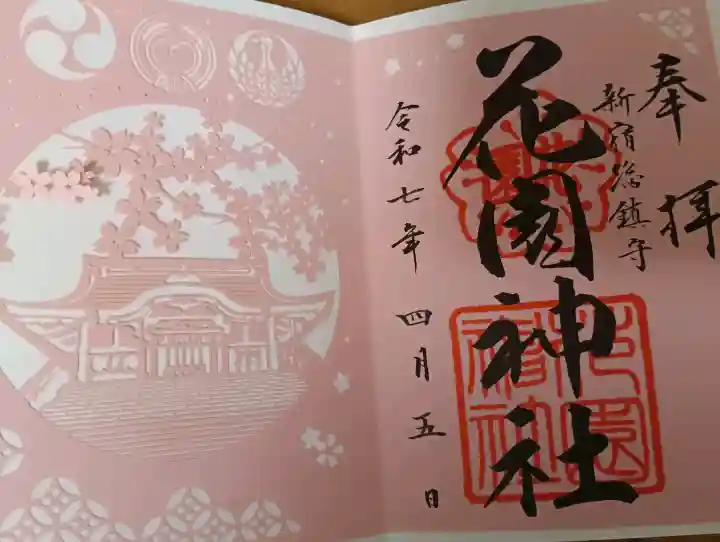 奉拝
新宿総鎮守
花園神社
令和七年 四月 五 日
花園神社